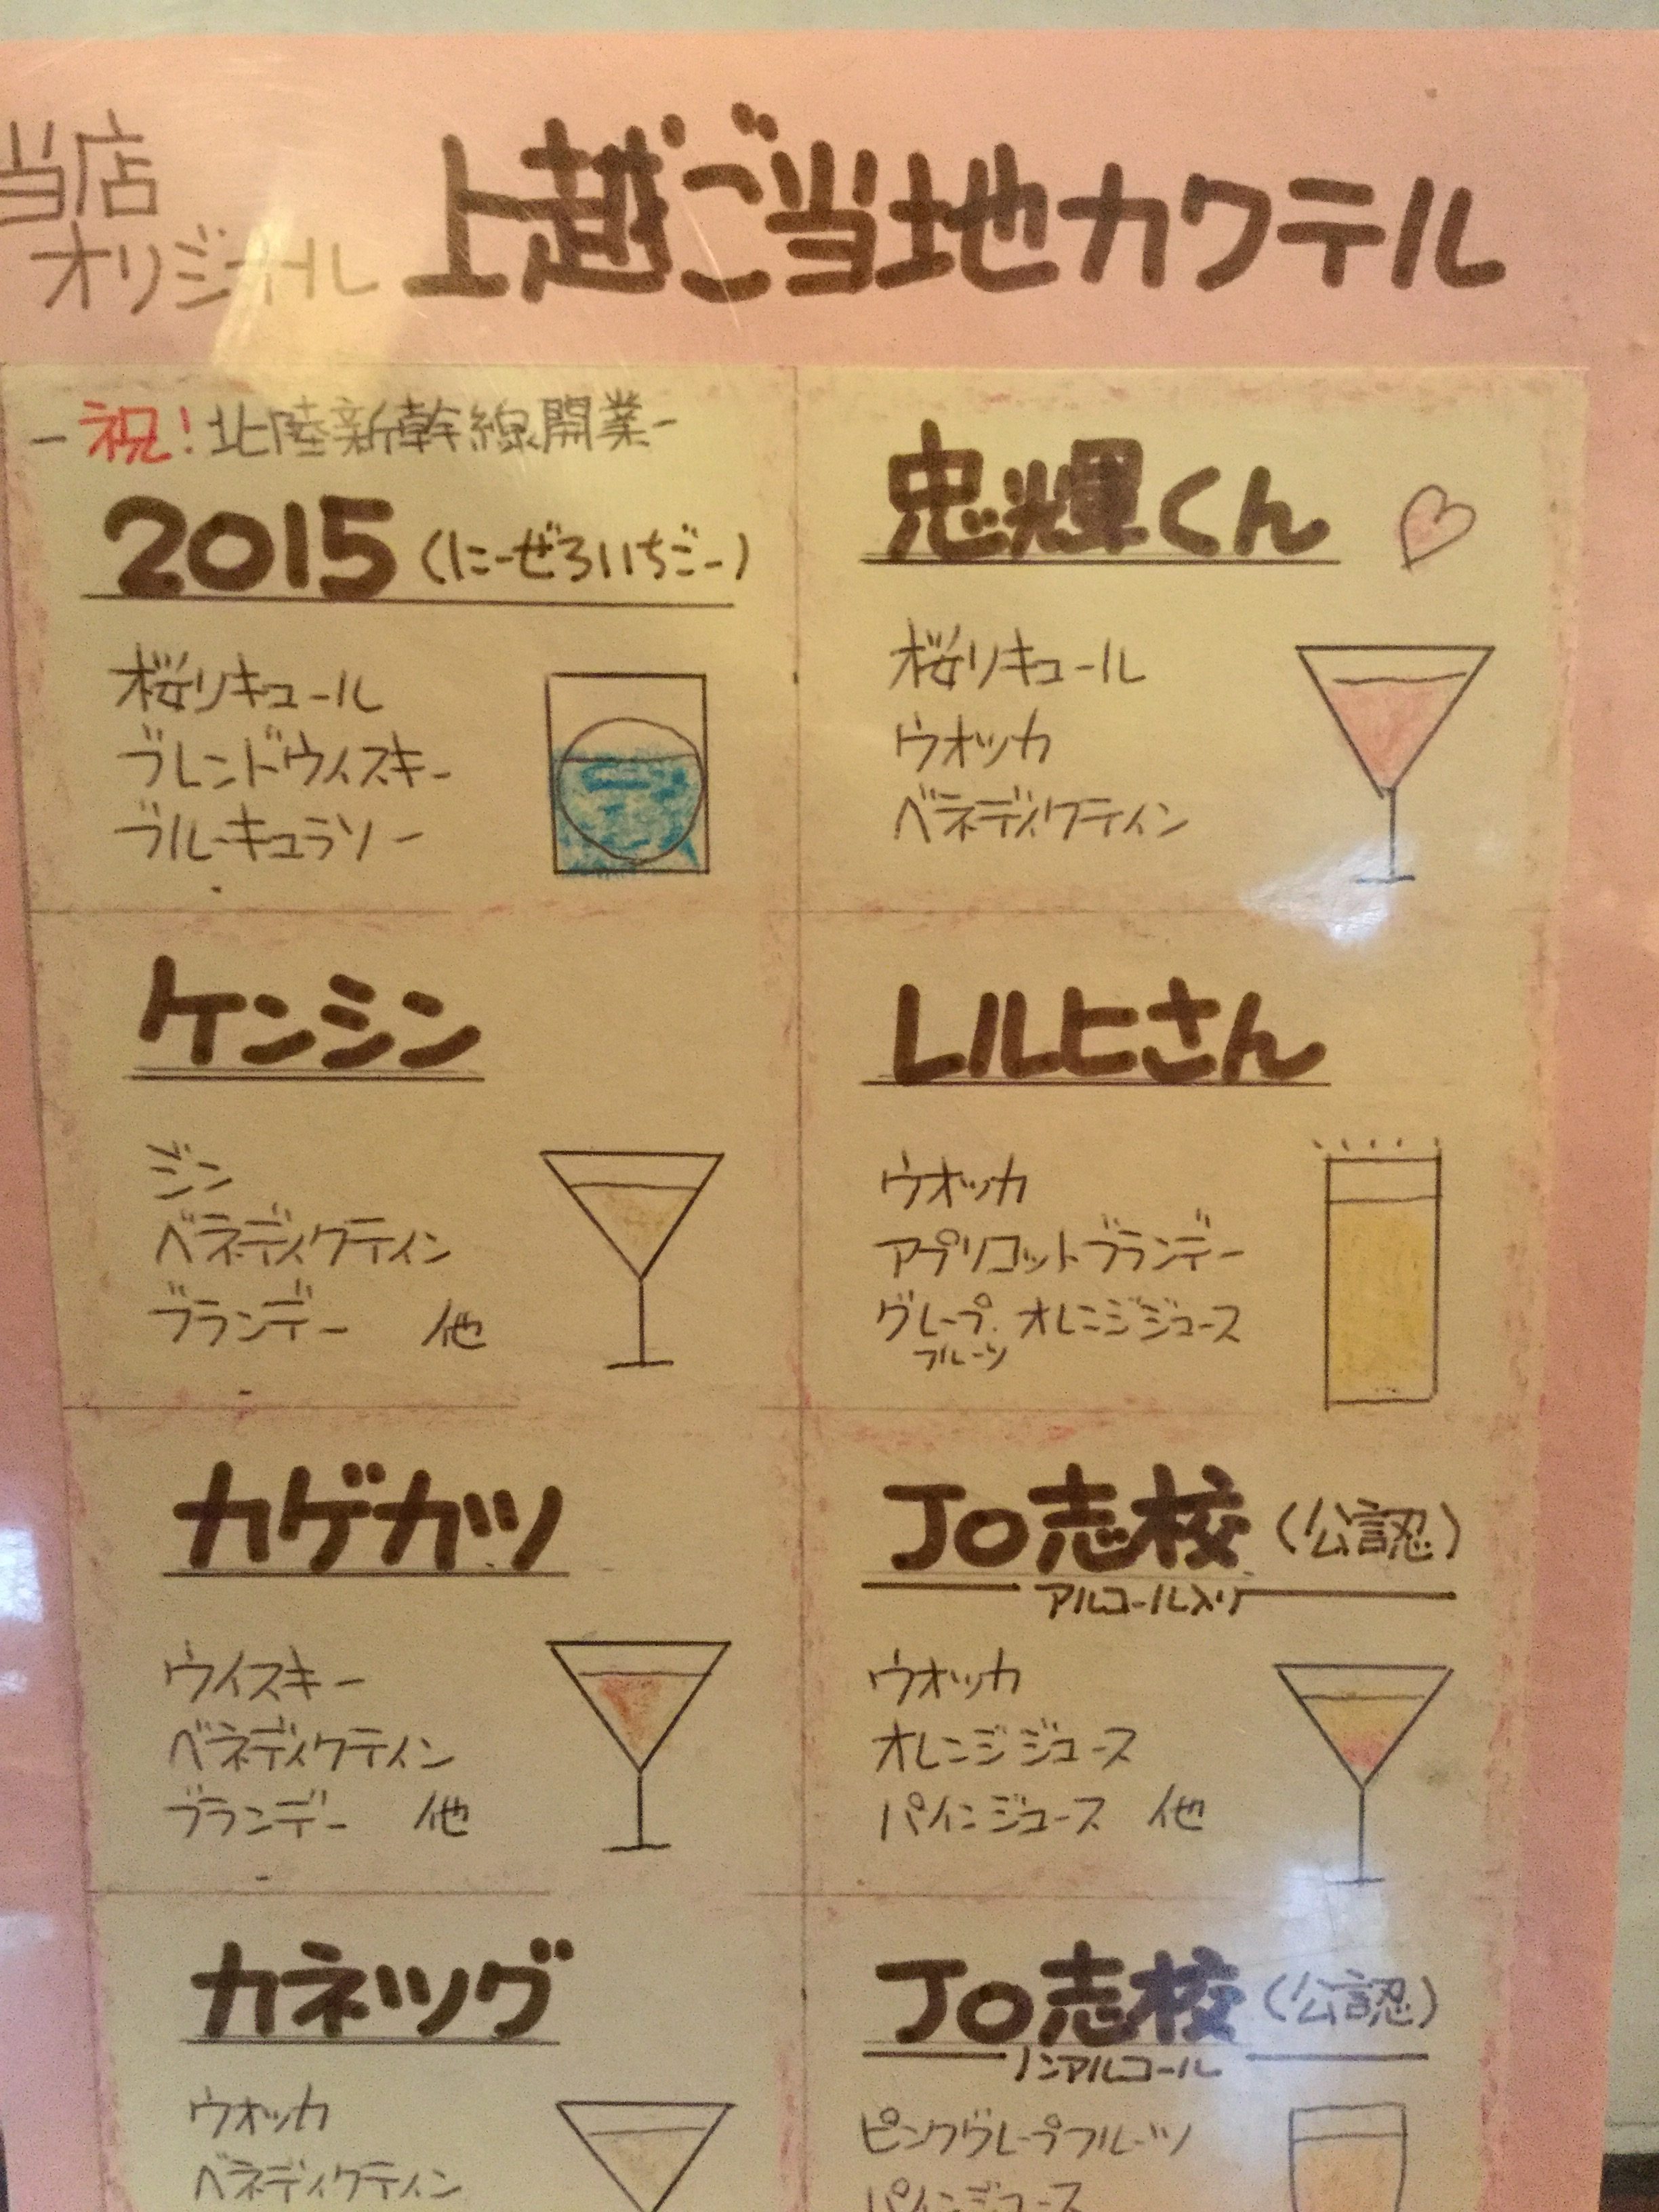 当店
オリジナル
上越ご当地カクテル
-祝!北陸新幹線開業-
2015(にーぜろいちごー)
桜リキュール
ブレンドウィスキー
ブルーキュラソー
忠輝くん
桜リキュール
ウオッカ
ベネディクティン
ケンシン
ジン
ベネディクティン
ブランデー 他
レルヒさん
ウオッカ
アプリコットブランデー
グレープ.オレンジジュース
フルーツ
カゲカツ
ウイスキー
ベネディクティン
ブランデー 他
JO志校(公認)
アルコール入り
ウオッカ
オレンジジュース
パインジュース 他
カネツグ
ウオッカ
ベネディクティン
JO志校(公認)
ノンアルコール
ピンクグレープフルーツ
パインジュース